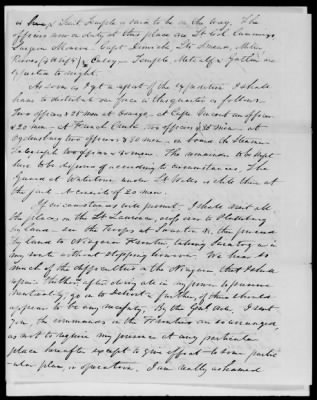 & Lieut Temple is said to be on the way. The
officers now on duty at this place are Lt Col Cummings
Surgeon Macomb Capt Dimick, Lts Smead, Miller
Rivers (4th Regt) & Casey — Temple, Metcalf & Gatlin are
expected to night.
As soon as I get a part of the I shall
have to distribute our force in this quarter as follows
Two officers & 25 men at Oswego — at Cape Vincent an officer
& 20 men — At French Creek two officers & 25 men — at
Ogdensburg two officers & 50 men, on board the Steamer
Telegraph two officers & men. The remainder to be kept
here to be disposed of according to circumstances. The
Guard at Watertown under Lt Wells is still there at
the jail. It consists of 20 men.
If circumstances will permit, I shall visit all
the places on the St Lawrence, cross over to Plattsburg
by land — see the troops at Swanton &c, then proceed
by land to Niagara Frontier, taking Saratoga in
my route without stopping however. We hear so
much of the difficulties on the Niagara that I shall
repair thither, after doing all in my power to preserve
Neutrality, go on to Detroit & further, if there should
appear to be any necessity. By the Genl order, I sent
you, the commands on the Frontiers are so arranged
as not to require my presence at any particular
place hereafter except to give effect to some partic-
ular plan, or operation. I am really ashamed